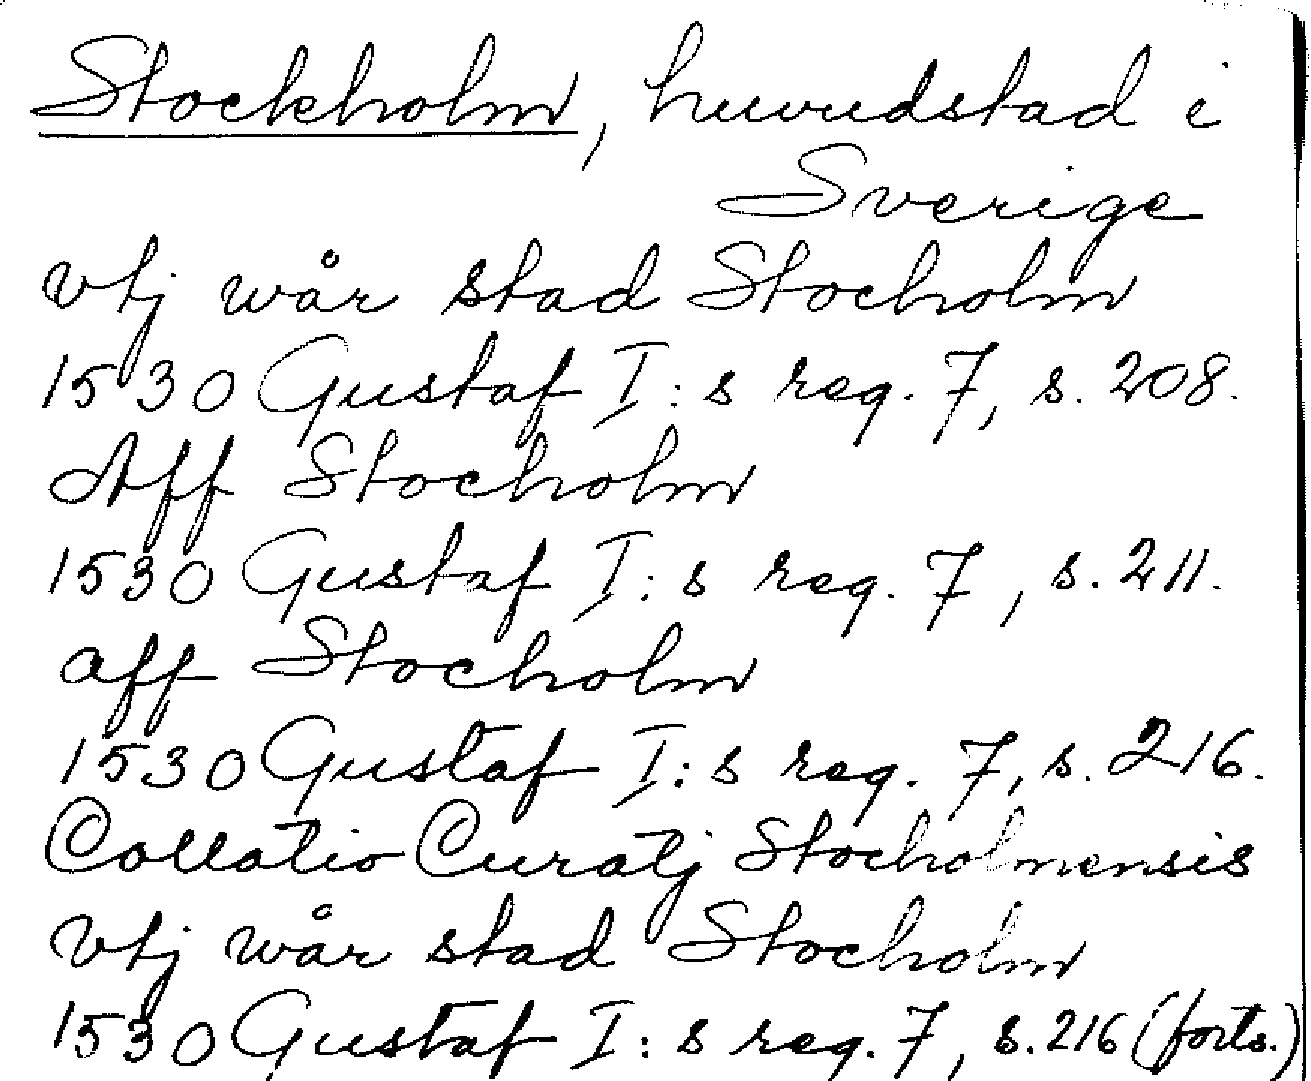 Stockholm, huvudstad i
Sverige
vtj wår stad Stocholm
1530 Gustaf I:s reg. 7, s. 208.
Aff Stocholm
1530 Gustaf I:s reg. 7, s. 211.
aff Stocholm
1530 Gustaf I:s reg. 7, s. 216.
Collatio Curatj Stocholmensis
vtj wår stad Stocholm
1530 Gustaf I:s reg. 7, s. 216 (forts.)